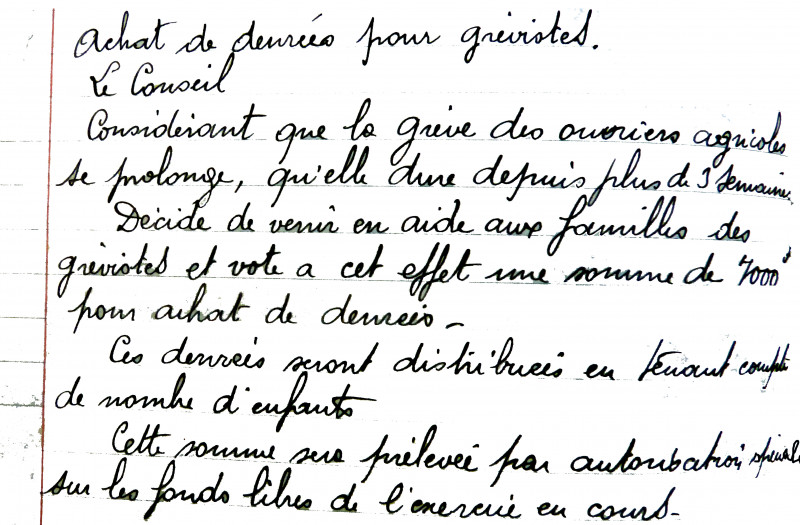 Achat de denrées pour grévistes.
Le Conseil
Considérant que la grève des ouvriers agricoles
se prolonge, qu'elle dure depuis plus de 3 semaines.
Décide de venir en aide aux familles des
grévistes et vote a cet effet une somme de 7000f
pour achat de denrées -
Ces denrées seront distribuées en tenant compte
de nombre d'enfants
Cette somme sera prélevée par autorisation spéciale
sur les fonds libres de l'exercice en cours -